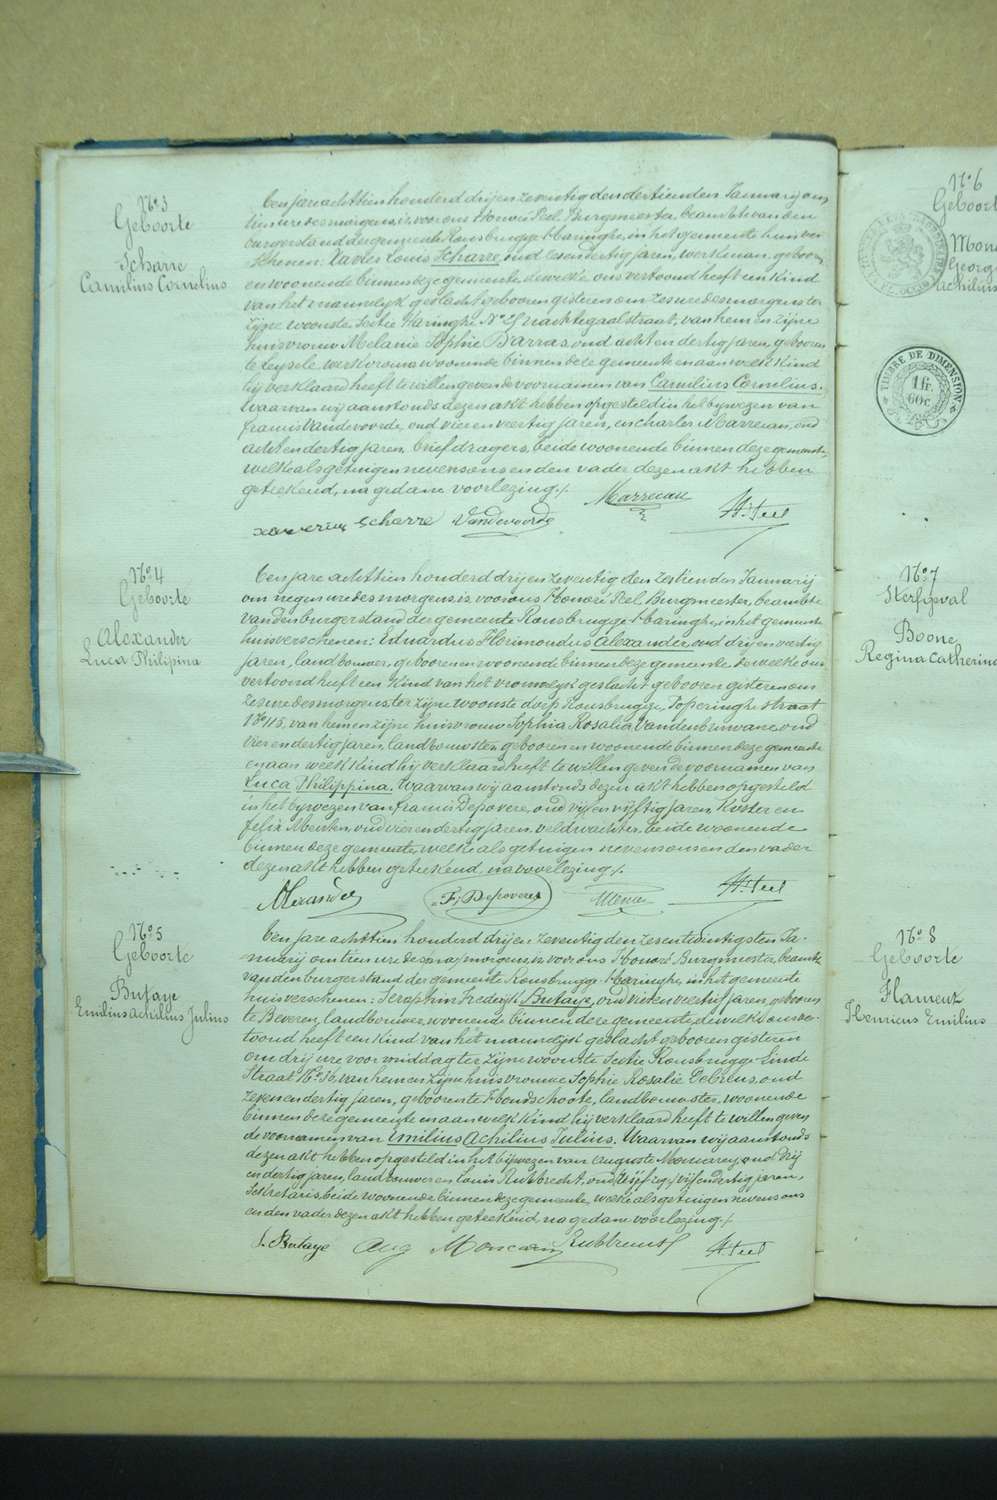 N.º 3
Geboorte
Scharre
Camilius Cornelius
Een jare achttien honderd drij en zeventig den dertienden Januarij om
tien ure des morgens, is voor ons Honoré Peel, Burgmeester, beambte van den
burgerstand der gemeente Rousbrugge-Haringhe, in het gemeente huis ver
schenen: Xavier Louis Scharre, oud zesendertig jaren, werkman, geboren
en woonende binnen deze gemeente dewelke ons vertoond heeft een kind
van het mannelijk geslacht geboren gisteren om zes ure des morgens ter
zijne woonste Sectie Haringhe N.º Nachtegaalstraat, van hem en zijne
huisvrouw Melanie Sophie Darras, oud acht en dertig jaren, geboren
te Leysele werkvrouw woonende binnen deze gemeente en aan welk kind
hij verklaard heeft te willen geven de voornamen van Camilius Cornelius.
Waarvan wij aanstonds dezen akt hebben opgesteld in het bijwezen van
francis Vandevoorde, oud vier en veertig jaren, en charles Marreeau, oud
acht en dertig jaren, briefdragers, beide woonende binnen deze gemeente,
welke als getuigen nevens ons en den vader dezen akt hebben
geteekend, na gedane voorlezing./.
Scharre Vandevoorde Marreeau H. Peel
N.º 4
Geboorte
Alexander
Luca Philipina
Een jare achttien honderd drij en zeventig den zestienden Januarij
om negen ure des morgens, is voor ons Honoré Peel, Burgmeester, beambte
van den burgerstand der gemeente Rousbrugge-Haringhe, in het gemeente
huis verschenen: Eduardus Florimondus Alexander, oud drij en veertig
jaren, landbouwer, geboren en woonende binnen deze gemeente dewelke ons
vertoond heeft een kind van het vrouwelijk geslacht geboren gisteren om
zes ure des morgens ter zijne woonste dorp Rousbrugge, Poperinghe straat
N.º 115, van hem en zijne huisvrouw Sophia Rosalia oud
vier en dertig jaren, landbouwster, geboren en woonende binnen deze gemeente
en aan welk kind hij verklaard heeft te willen geven de voornamen van
Luca Philippina. Waarvan wij aanstonds dezen akt hebben opgesteld
in het bijwezen van francis Depovere, oud vijf en vijftig jaren, Koster en
felix oud vier en dertig jaren, veldwachter, beide woonende
binnen deze gemeente, welke als getuigen nevens ons en den vader
dezen akt hebben geteekend, na voorlezing./.
Alexander F. Depovere H. Peel
N.º 5
Geboorte
Butaye
Emilius Achilius Julius
Een jare achttien honderd drij en zeventig den zes en twintigsten Ja-
nuarij om tien ure des morgens, is voor ons Honoré Burgmeester, beambte
van den burgerstand der gemeente Rousbrugge-Haringhe, in het gemeente
huis verschenen: Seraphin Frederijk Butaye, oud jaren, geboren
te Beveren, landbouwer, woonende binnen deze gemeente, dewelke ons ver-
toond heeft een kind van het mannelijk geslacht geboren gisteren
om drij ure voor middag ter zijne woonste Sectie Rousbrugge Einde
Straat N.º 36, van hem en zijne huisvrouw Sophie Rosalie oud
zeven en dertig jaren, geboren te Hondschoote, landbouwster, woonende
binnen deze gemeente en aan welk kind hij verklaard heeft te willen geven
de voornamen van Emilius Achilius Julius. Waarvan wij aanstonds
dezen akt hebben opgesteld in het bijwezen van Auguste oud drij
en dertig jaren, landbouwer en Louis Rubbrecht, oud vijf en dertig jaren,
Sekretaris, beide woonende binnen deze gemeente, welke als getuigen nevens ons
en den vader dezen akt hebben geteekend, na gedane voorlezing./.
S. Butaye Aug Rubbrecht H. Peel
N.º 6
Geboorte
Georg
Achilius
TIMBRE DE DIMENSION
1 fr.
60c.
N.º 7
Sterfgeval
Boone
Regina Catherina
N.º 8
Geboorte
Flament
Henricus Emilius